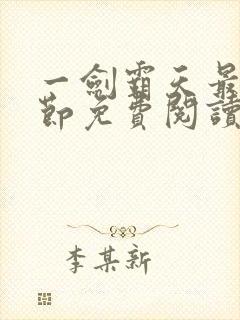 一劍霸天最
節免費閱讀
李某新